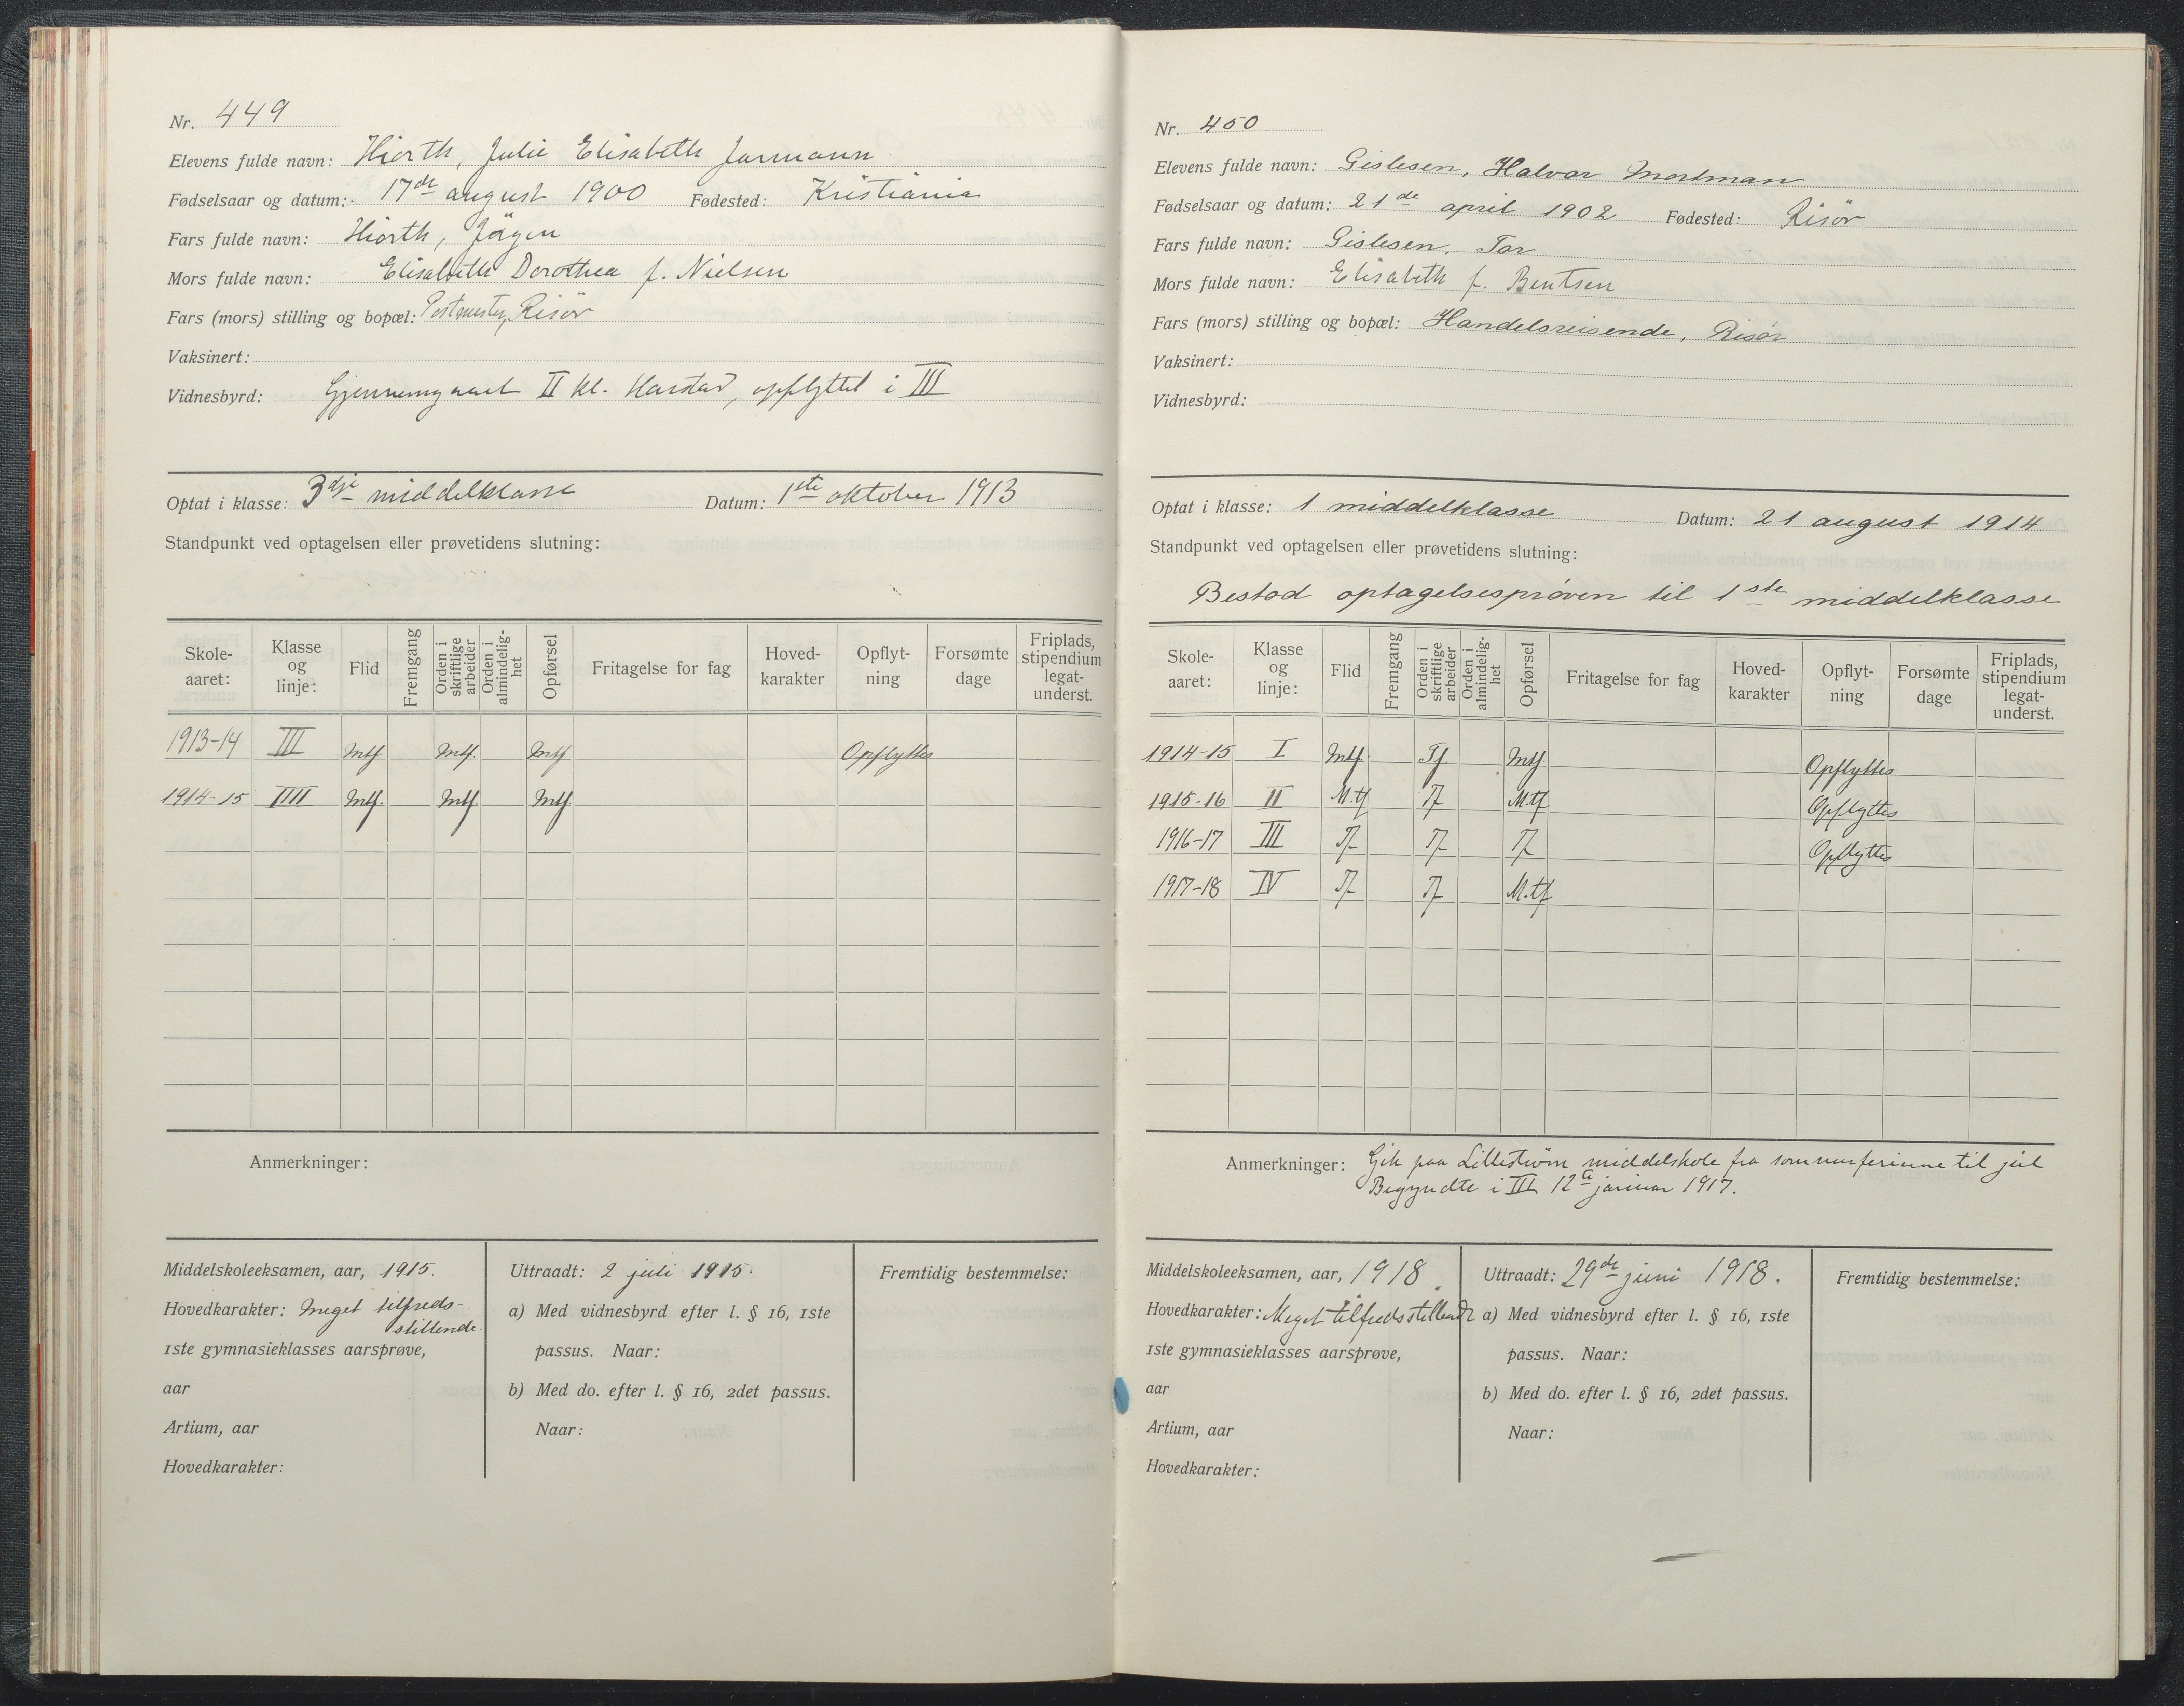 Nr. 449
Elevens fulde navn: Hiorth, Julie Elisabeth Jarmann
Fødselsaar og datum: 17de august 1900 Fødested: Kristiania
Fars fulde navn: Hiorth, Jörgen
Mors fulde navn: Elisabeth Dorothea f. Nielsen
Fars (mors) stilling og bopæl: Postmester, Risör
Vaksinert:
Vidnesbyrd: Gjennemgaaet II kl. Harstad, opflyttet i III
Optat i klasse: 3dje middelklasse Datum: 1ste oktober 1913
Standpunkt ved optagelsen eller prøvetidens slutning:
Skole-aaret: Klasse og linje: Flid Fremgang Orden i skriftlige arbeider Orden i almindelig-het Opførsel Fritagelse for fag Hoved-karakter Opflyt-ning Forsømte dage Friplads, stipendium legat-underst.
1913-14 III Mtf Mtf. Mtf Opflyttes
1914-15 IIII Mtf. Mtf. Mtf
Anmerkninger:
Middelskoleeksamen, aar, 1915.
Hovedkarakter: Meget tilfreds-
stillende.
1ste gymnasieklasses aarsprøve,
aar
Artium, aar
Hovedkarakter:
Uttraadt: 2 juli 1915.
a) Med vidnesbyrd efter l. § 16, 1ste
passus. Naar:
b) Med do. efter l. § 16, 2det passus.
Naar:
Fremtidig bestemmelse:
Nr. 450
Elevens fulde navn: Gislesen, Halvor Mortman
Fødselsaar og datum: 21de april 1902 Fødested: Risör
Fars fulde navn: Gislesen, Tor
Mors fulde navn: Elisabeth f. Bentsen
Fars (mors) stilling og bopæl: Handelsreisende, Risör
Vaksinert:
Vidnesbyrd:
Optat i klasse: 1 middelklasse Datum: 21 august 1914.
Standpunkt ved optagelsen eller prøvetidens slutning:
Bestod optagelsesprøven til 1ste middelklasse
Skole-aaret: Klasse og linje: Flid Fremgang Orden i skriftlige arbeider Orden i almindelig-het Opførsel Fritagelse for fag Hoved-karakter Opflyt-ning Forsømte dage Friplads, stipendium legat-underst.
1914-15 I Mtf. Tf. Mtf. Opflyttes
1915-16 II M.tf Tf M.tf Opflyttes
1916-17 III Tf Tf Tf Opflyttes
1917-18 IV Tf Tf M.tf
Anmerkninger: Gik paa Lilleström middelskole fra sommerferierne til jul
Begyndte i III 12te januar 1917.
Middelskoleeksamen, aar, 1918.
Hovedkarakter: Meget tilfredsstillende
1ste gymnasieklasses aarsprøve,
aar
Artium, aar
Hovedkarakter:
Uttraadt: 29de juni 1918.
a) Med vidnesbyrd efter l. § 16, 1ste
passus. Naar:
b) Med do. efter l. § 16, 2det passus.
Naar:
Fremtidig bestemmelse: